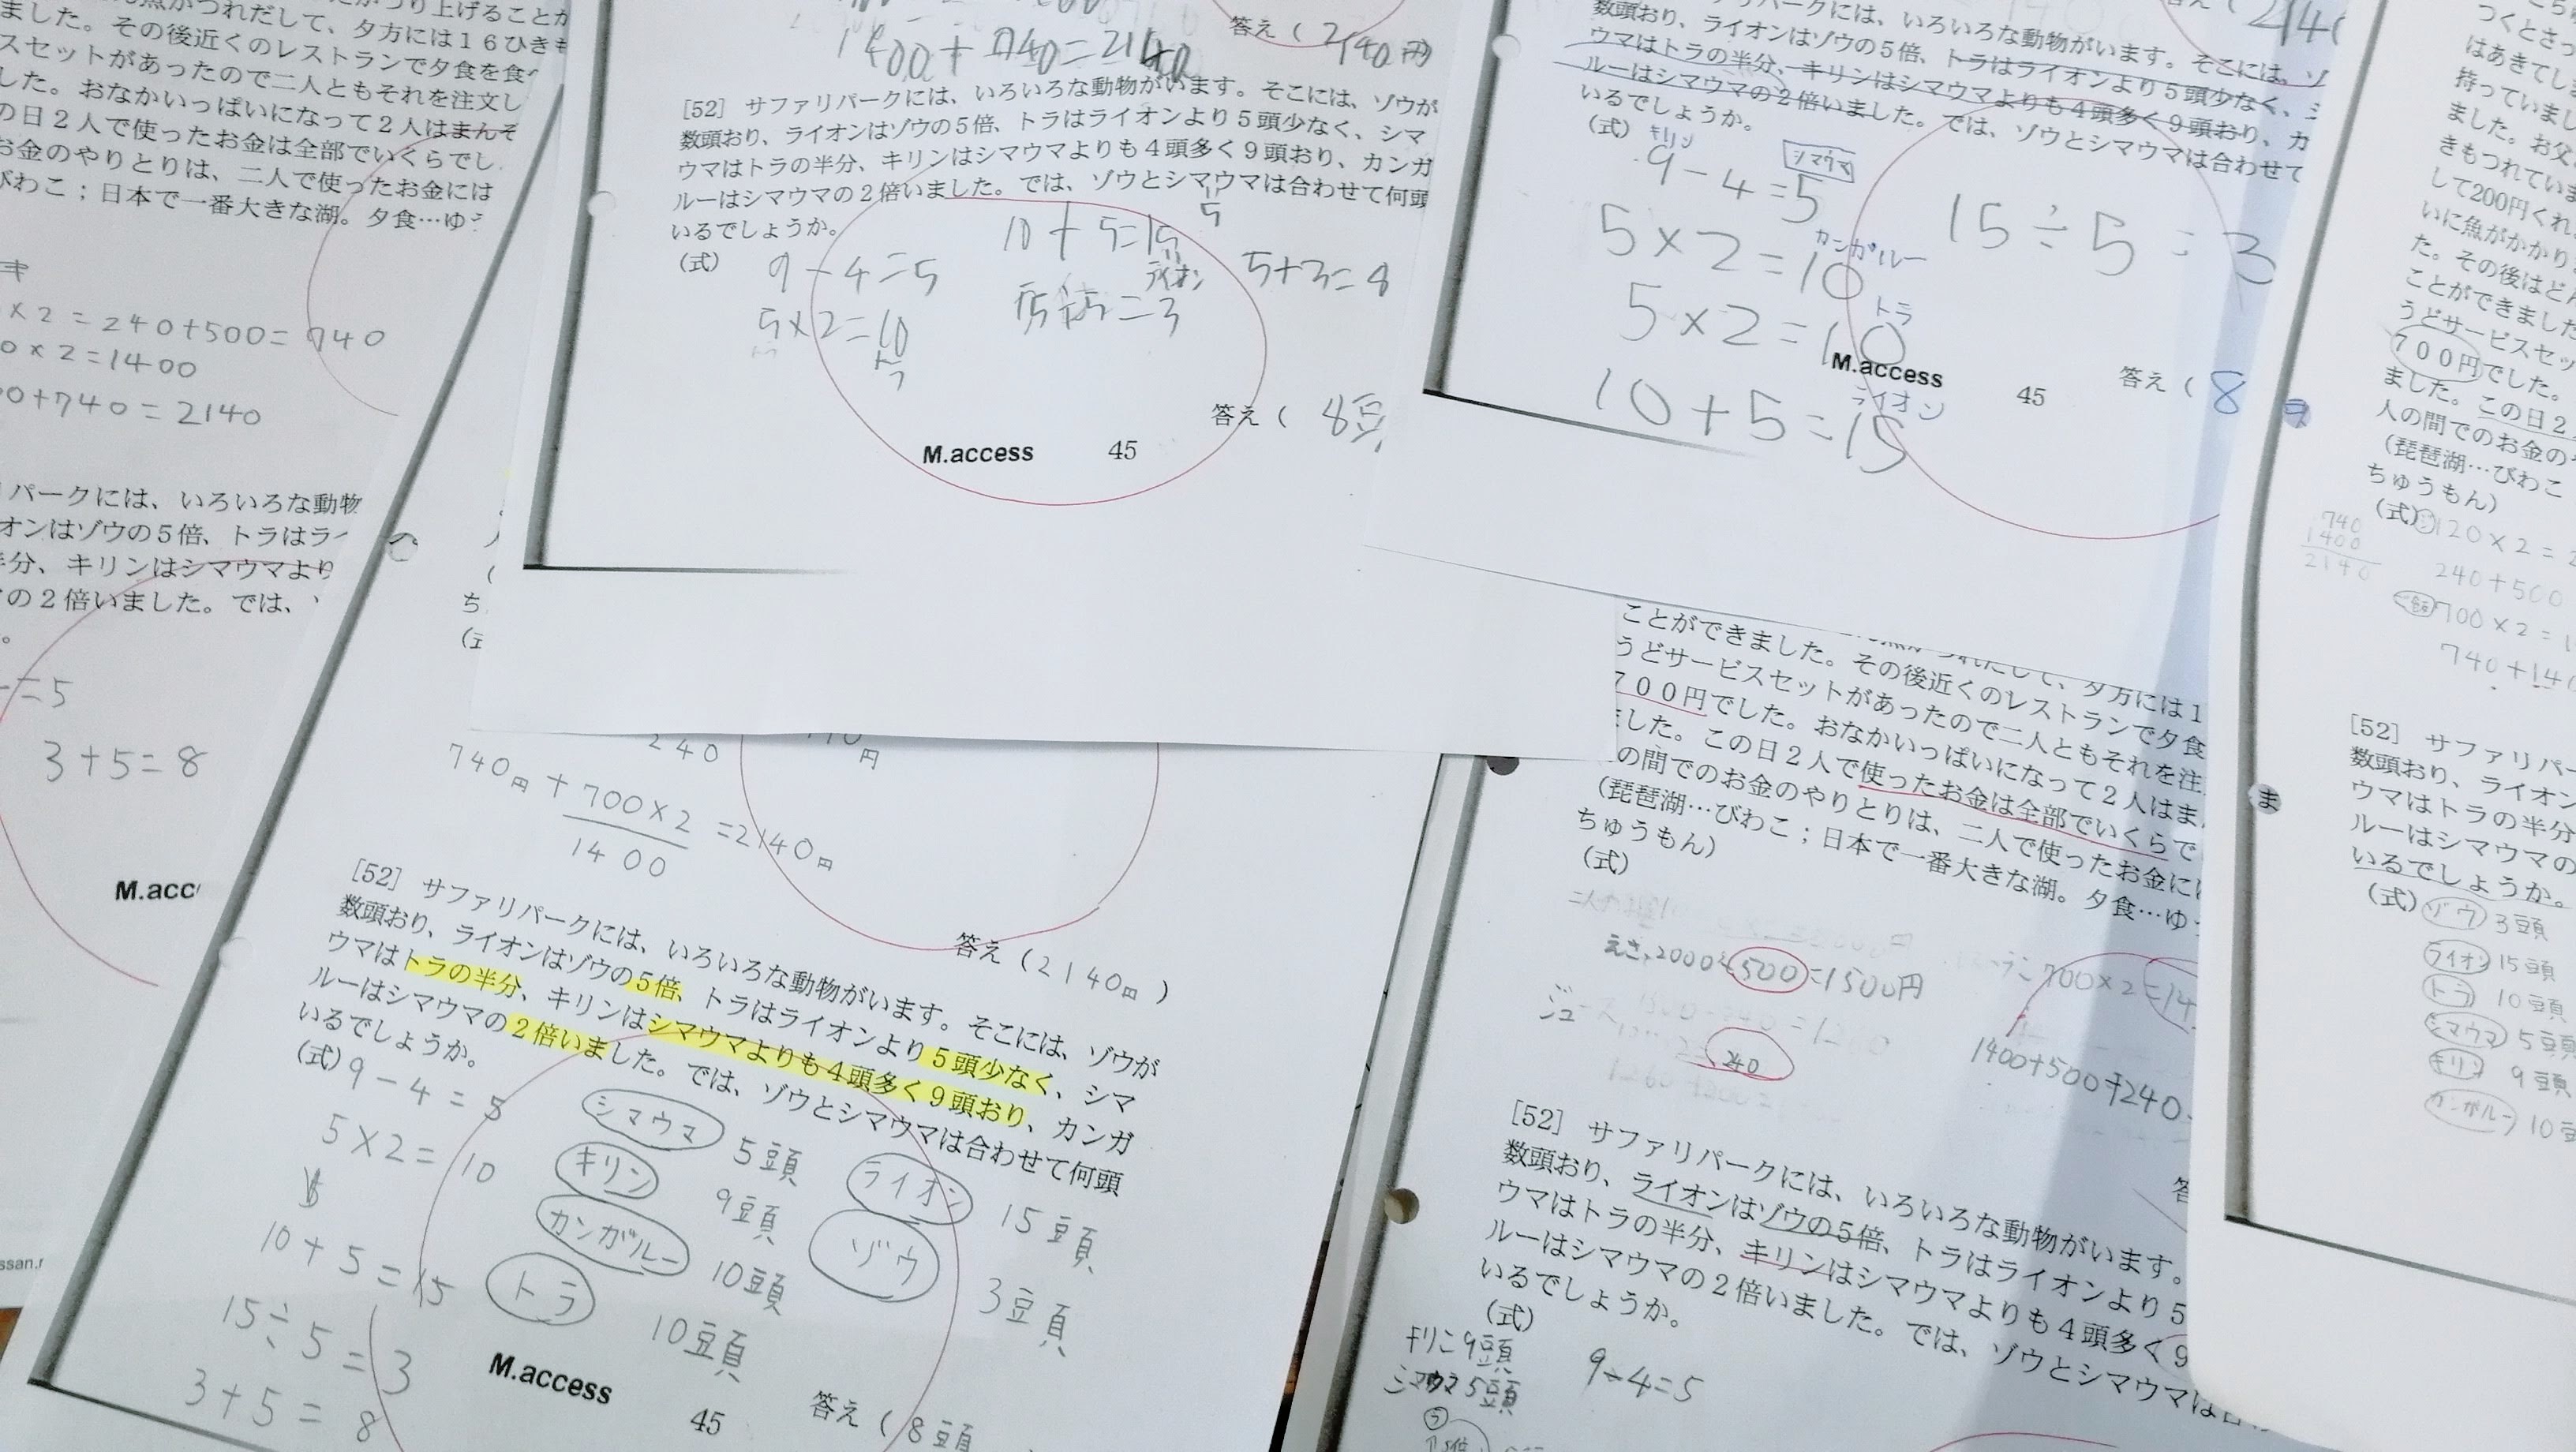 ました。その後近くのレストランで夕食を食べ
スセットがあったので二人ともそれを注文し
した。おなかいっぱいになって2人はまんぞ
の日2人で使ったお金は全部でいくらでし
お金のやりとりは、二人で使ったお金には
びわこ；日本で一番大きな湖。夕食…ゆ
×2=240+500=740
0×2=1400
00+740=2140
パークには、いろいろな動物
オンはゾウの5倍、トラはラ
半分、キリンはシマウマより
の2倍いました。では、
=5
3+5=8
M.acc
1400+740=2140
答え(2140円
[52] サファリパークには、いろいろな動物がいます。そこには、ゾウが
数頭おり、ライオンはゾウの5倍、トラはライオンより5頭少なく、シマ
ウマはトラの半分、キリンはシマウマよりも4頭多く9頭おり、カンガ
ルーはシマウマの2倍いました。では、ゾウとシマウマは合わせて何頭
いるでしょうか。
5
(式)
9-4=5
10+5=15
ライオン
5+3=8
5×2=10
トラ
=3
答え( 8頭
M.access 45
数頭おり、ライオンはゾウの5倍、トラはライオンより5頭少なく、シ
ウマはトラの半分、キリンはシマウマよりも4頭多く9頭おり、カ
ルーはシマウマの2倍いました。では、ゾウとシマウマは合わせて
いるでしょうか。
(式)
キリン
シマウマ
9-4=5
15÷5=3
5×2=10
カンガルー
5×2=10
トラ
10+5=15
ライオン
M.access 45
答え( 8
240
円
740円+700×2=2140円
1400
答え(2140円)
[52] サファリパークには、いろいろな動物がいます。そこには、ゾウが
数頭おり、ライオンはゾウの5倍、トラはライオンより5頭少なく、シマ
ウマはトラの半分、キリンはシマウマよりも4頭多く9頭おり、カンガ
ルーはシマウマの2倍いました。では、ゾウとシマウマは合わせて何頭
いるでしょうか。
(式)
9-4=5
5×2=10
10+5=15
15÷5=3
3+5=8
シマウマ 5頭
キリン 9頭
カンガルー 10頭
トラ 10頭
ライオン 15頭
ゾウ 3頭
M.access 45
答え( 8頭
ことができました。その後近くのレストランで夕食
うどサービスセットがあったので二人ともそれを注
700円でした。おなかいっぱいになって2人はま
ました。この日2人で使ったお金は全部でいくらで
の間でのお金のやりとりは、二人で使ったお金に
(琵琶湖…びわこ；日本で一番大きな湖。夕食…ゆ
ちゅうもん)
(式)
えさ
500
=1500円
700×2=14
ジュース
240
1400+500+240
[52] サファリパークには、いろいろな動物がいます。
数頭おり、ライオンはゾウの5倍、トラはライオンより5
ウマはトラの半分、キリンはシマウマよりも4頭多く9
ルーはシマウマの2倍いました。では、ゾウとシマウマは
いるでしょうか。
(式)
キリン9頭
シマウマ5頭
9-4=5
つくとさっ
はあきてし
持っていまし
ました。お父
きもつれてい
して200円くれ
いに魚がかかり
た。その後はどん
ことができました
うどサービスセッ
700円でした。
ました。この日2
人の間でのお金の
(琵琶湖…びわこ
ちゅうもん)
(式)
120×2=2
740
1400
2140
240+500
700×2=1
740+140
[52] サファリパー
数頭おり、ライオン
ウマはトラの半分
ルーはシマウマの
いるでしょうか。
(式)
ゾウ 3頭
ライオン 15頭
トラ 10頭
シマウマ 5頭
キリン 9頭
カンガルー 10頭